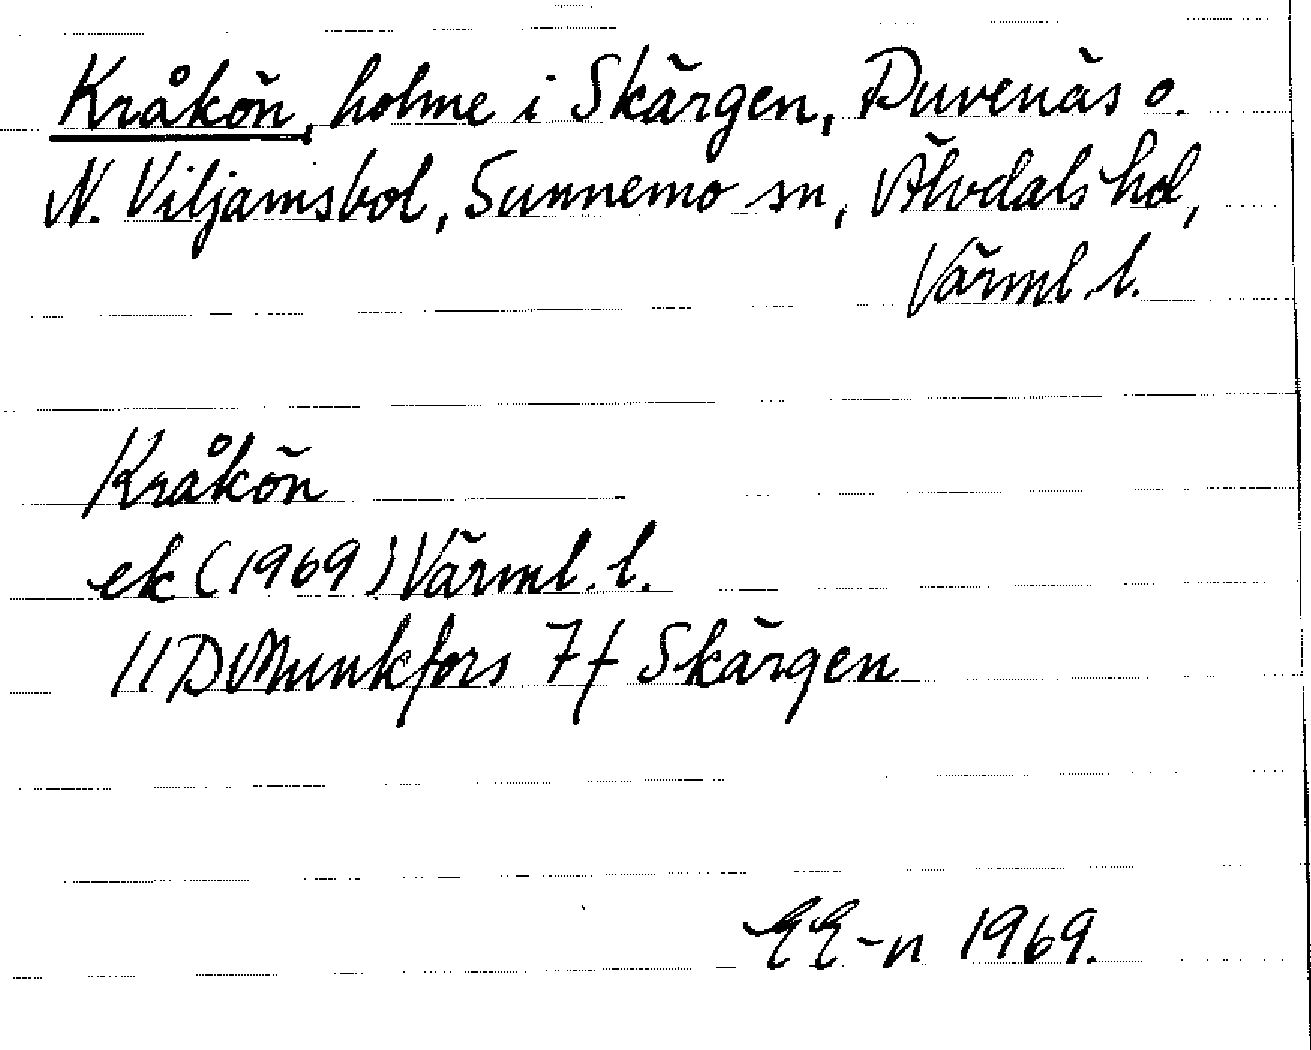 Kråkön, holme i Skärgen, Duvenäs o.
N. Viljamsbol, Sunnemo sn, Älvdals hd,
Värml. l.
Kråkön
ek (1969) Värml. l.
11D Munkfors 7f Skärgen
EE-n 1969.